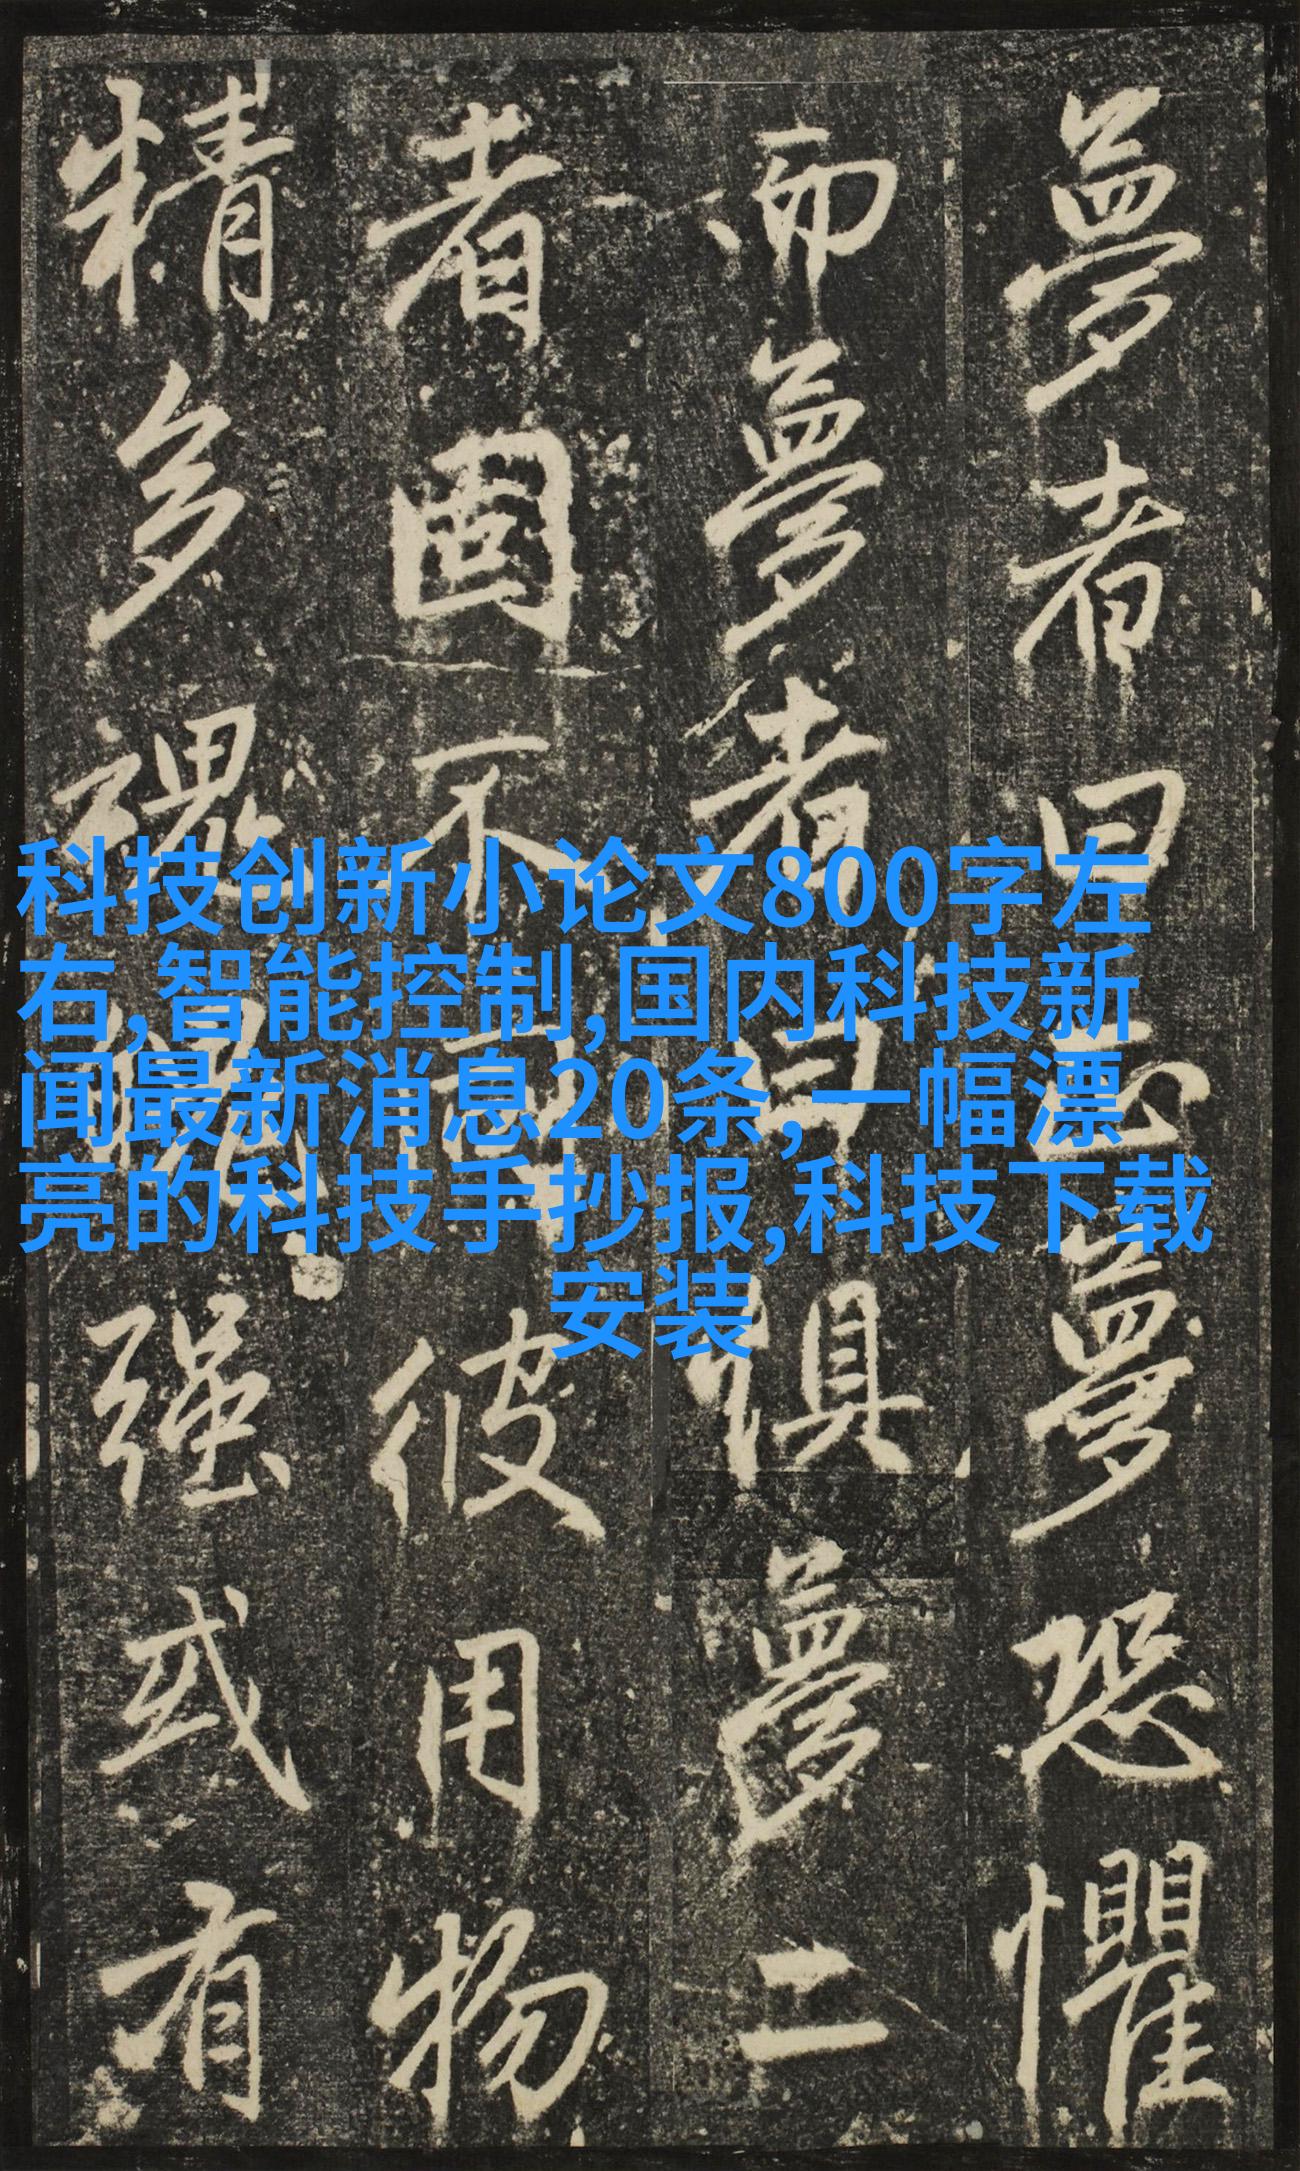 科技创新小论文800字左
右,智能控制,国内科技新
闻最新消息20条,一幅漂
亮的科技手抄报,科技下载
安装
夢者曰夢恐懼
而夢者曰惧夢二
者固不彼用物
精多魂魄强或有